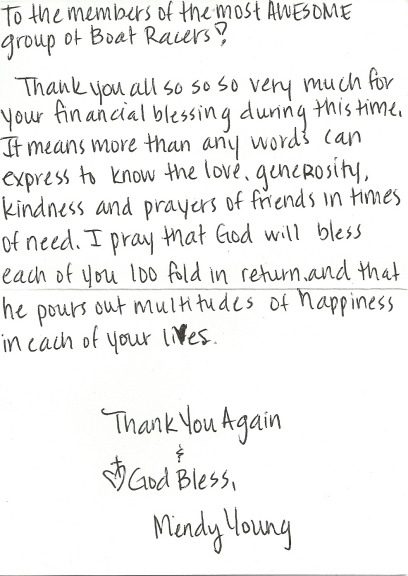 To the members of the most AWESOME
group of Boat Racers!
Thank you all so so so very much for
your financial blessing during this time.
It means more than any words can
express to know the love, generosity,
kindness and prayers of friends in times
of need. I pray that God will bless
each of you 100 fold in return, and that
he pours out multitudes of happiness
in each of your lives.
Thank You Again
&
God Bless,
Mendy Young